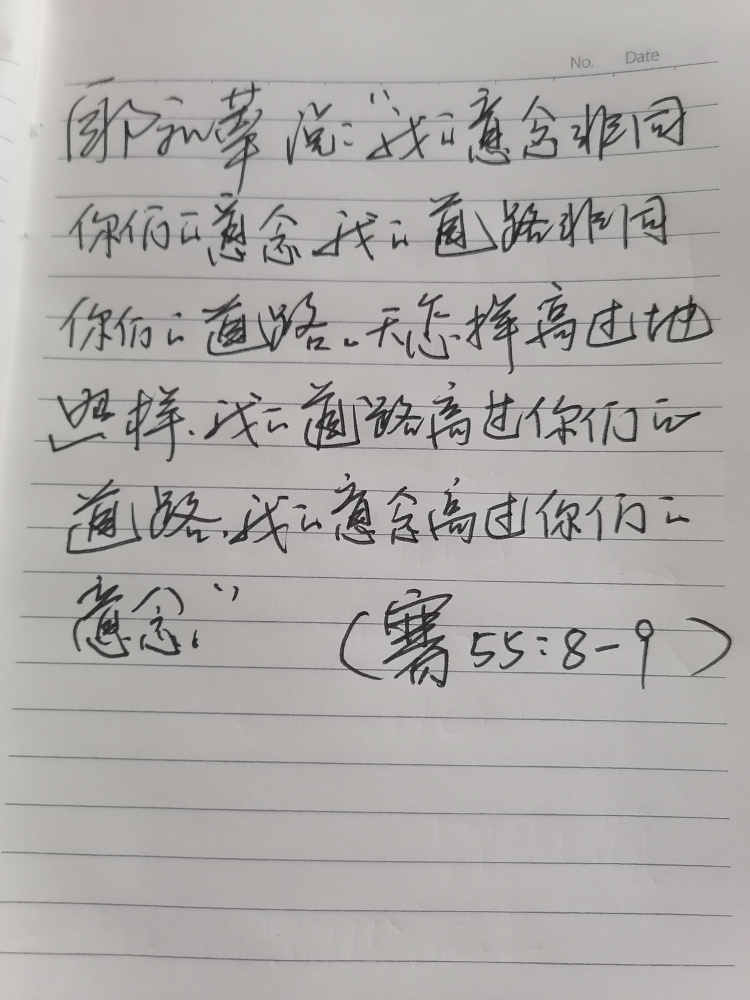 No. Date
耶和华说："我的意念非同
你们的意念.我的道路非同
你们的道路.天怎样高过地
照样.我的道路高过你们的
道路.我的意念高过你们的
意念."
(赛55:8-9)